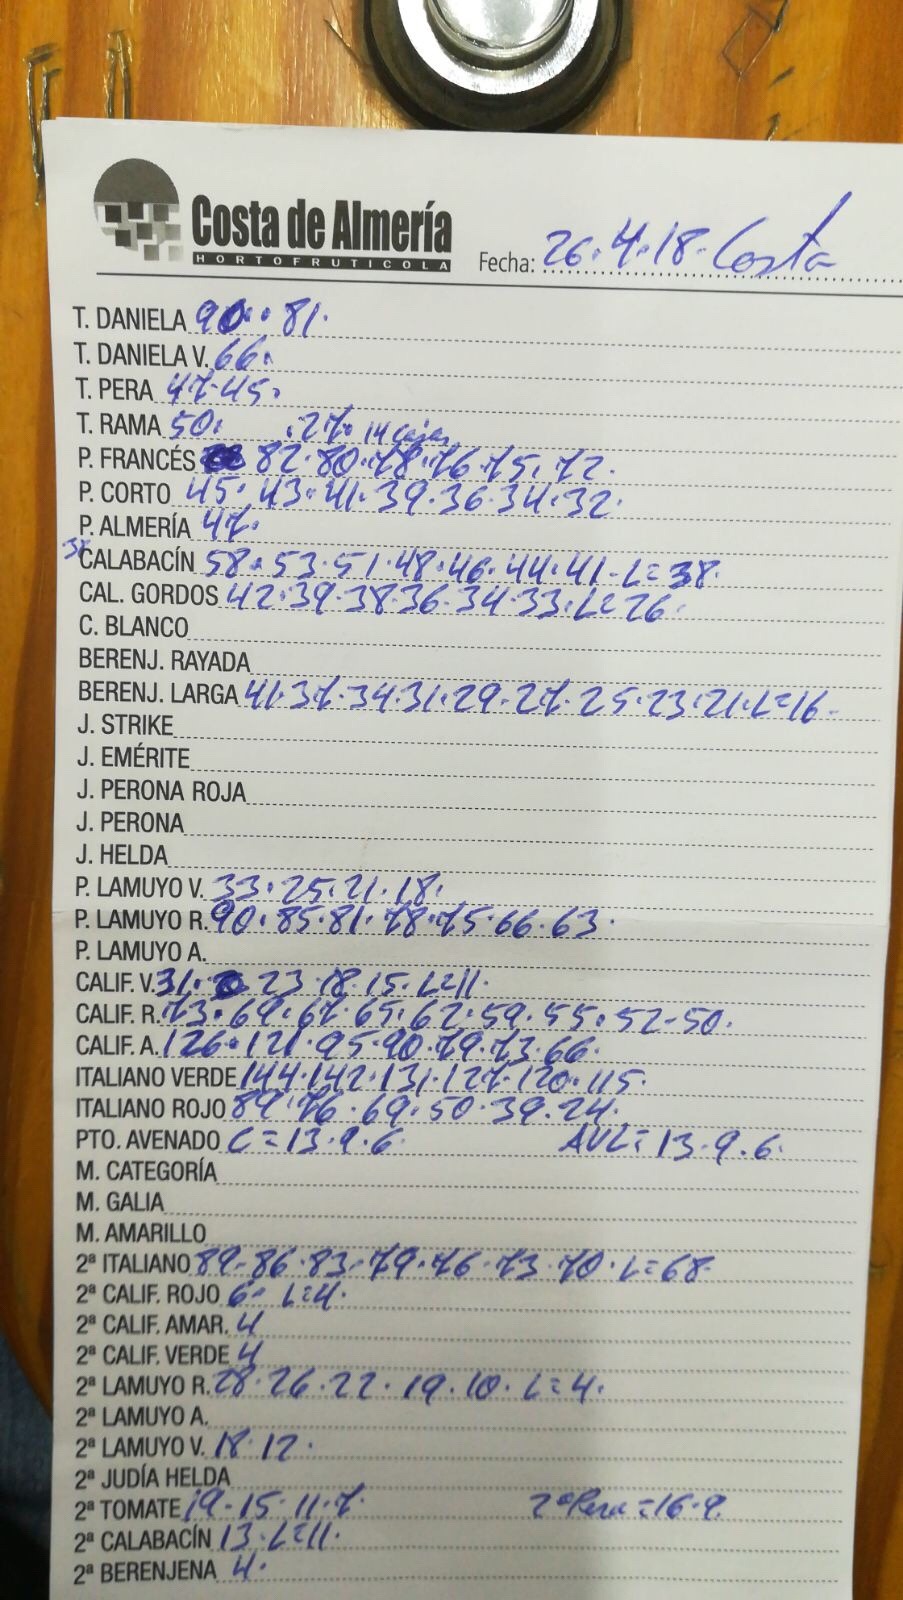 Costa de Almería
HORTOFRUTICOLA
Fecha: 26.4.18. Costa
T. DANIELA 90. 81.
T. DANIELA V. 66.
T. PERA 47-45.
T. RAMA 50. .27. 14 cajas
P. FRANCÉS 82.80.78.76.75.72.
P. CORTO 45. 43.41.39.36.34.32.
P. ALMERÍA 47.
CALABACÍN 58.53.51.48.46.44.41-L=38.
CAL. GORDOS 42.39.38 36.34.33.L=26.
C. BLANCO
BERENJ. RAYADA
BERENJ. LARGA 41.37.34.31.29.27.25.23.21.L=16.
J. STRIKE
J. EMÉRITE
J. PERONA ROJA
J. PERONA
J. HELDA
P. LAMUYO V. 33.25.21.18.
P. LAMUYO R. 90.85.81.78.75.66.63.
P. LAMUYO A.
CALIF. V. 31. 23.18.15.L=11.
CALIF. R. 73.69.67.65.62.59.55.52-50.
CALIF. A. 126.121.95.90.79.73.66.
ITALIANO VERDE 144.142.131.127.120.115.
ITALIANO ROJO 89.76.69.50.39.24.
PTO. AVENADO C=13.9.6. AVL=13.9.6.
M. CATEGORÍA
M. GALIA
M. AMARILLO
2ª ITALIANO 89-86.83.79.76.73.70.L=68.
2ª CALIF. ROJO 6- L=4.
2ª CALIF. AMAR. 4
2ª CALIF. VERDE 4
2ª LAMUYO R. 28.26.22.19.10.L=4.
2ª LAMUYO A.
2ª LAMUYO V. 18.12.
2ª JUDÍA HELDA
2ª TOMATE 19-15.11.7. 2ª Pera=16.9.
2ª CALABACÍN 13.L=11.
2ª BERENJENA 4.